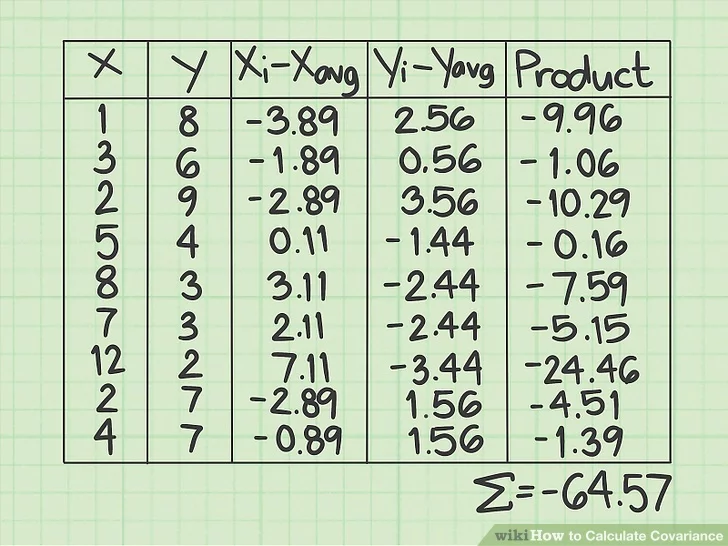 X Y Xi-Xavg Yi-Yavg Product
1 8 -3.89 2.56 -9.96
3 6 -1.89 0.56 -1.06
2 9 -2.89 3.56 -10.29
5 4 0.11 -1.44 -0.16
8 3 3.11 -2.44 -7.59
7 3 2.11 -2.44 -5.15
12 2 7.11 -3.44 -24.46
2 7 -2.89 1.56 -4.51
4 7 -0.89 1.56 -1.39
Σ=-64.57
wikiHow to Calculate Covariance